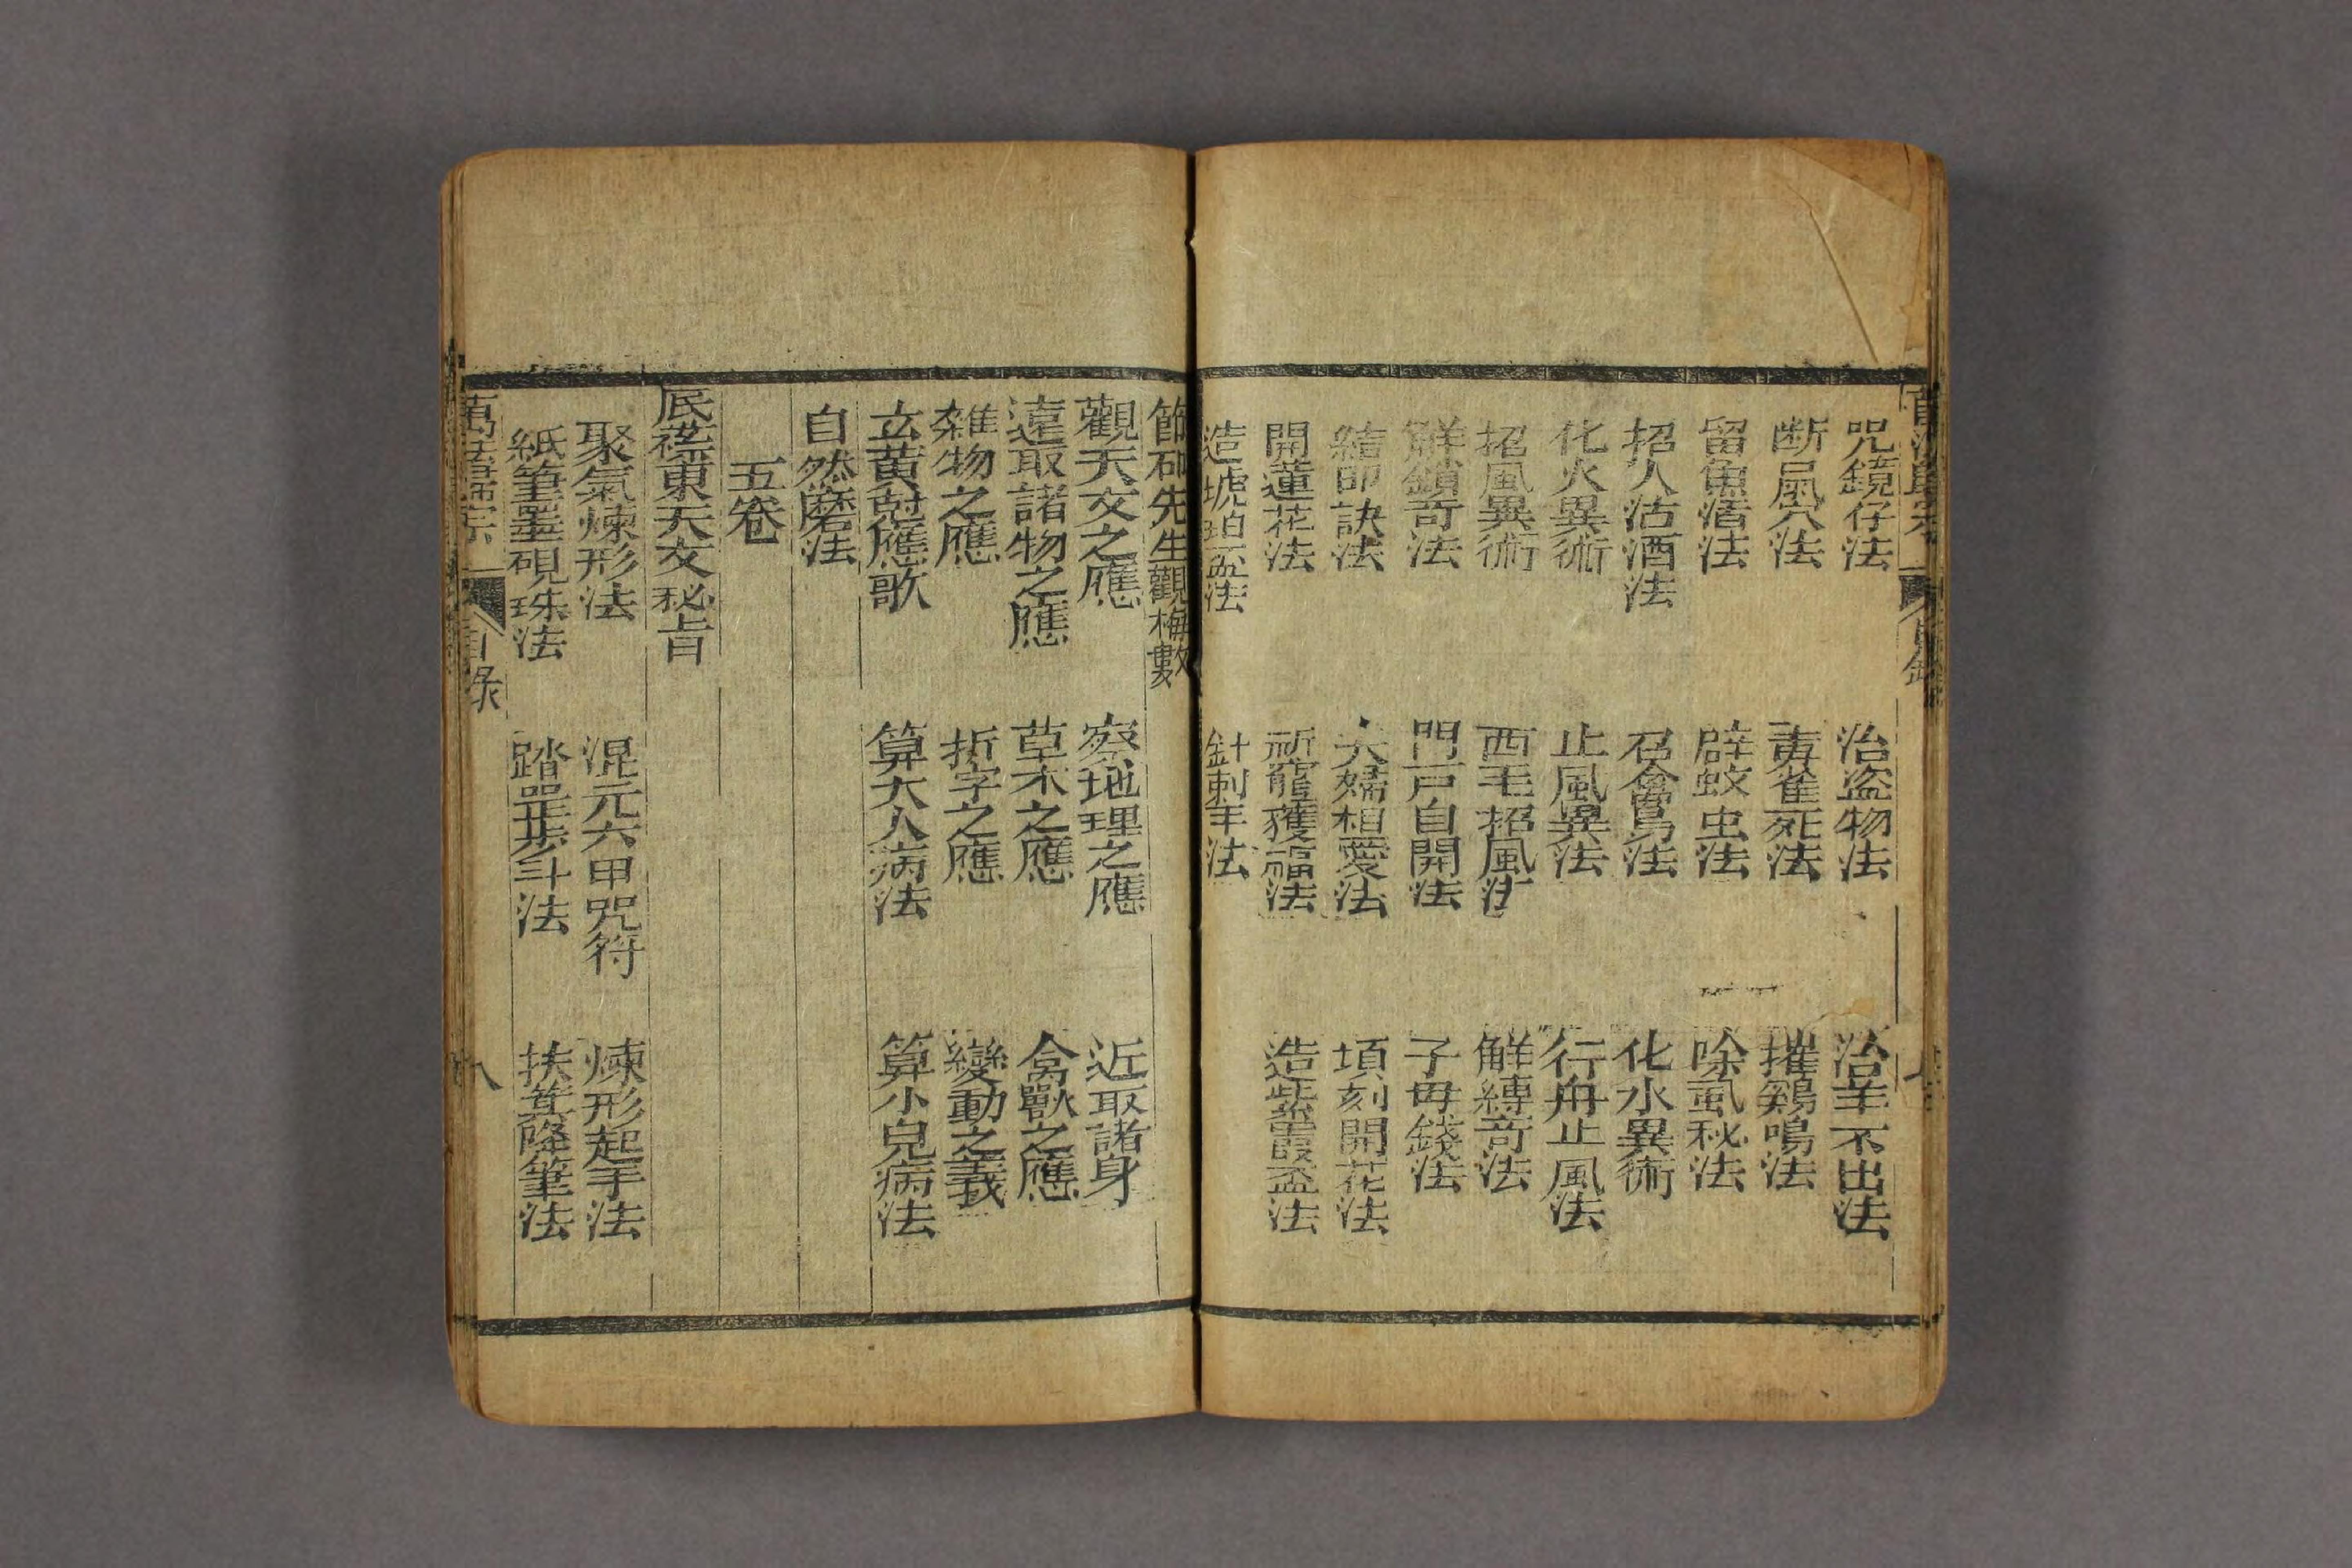 咒鏡仔法　治盗物法　治羊不出法
断鼠穴法　毒雀死法　摧鷄鳴法
留魚酒法　辟蚊虫法　除虱秘法
招人沽酒法　召禽鳥法　化水異術
化火異術　止風異法　行舟止風法
招風異術　西毛招風法　解縛竒法
觧鎖竒法　門戸自開法　子母錢法
結印訣法　夫婦相愛法　頃刻開花法
開蓮花法　祈寵獲福法　造紫霞盃法
造琥珀盃法　針刺羊法
節砷先生觀梅數
觀天文之應　察地理之應　近取諸身
遠取諸物之應　草木之應　禽獸之應
雜物之應　折字之應　變動之義
玄黄尅應歌　算大人病法　算小兒病法
自然磨法
五卷
底襟東天文秘旨
聚氣煉形法　混元六甲咒符　煉形起手法
紙筆墨硯珠法　踏罡步斗法　扶箕降筆法
萬法歸宗　目录　八